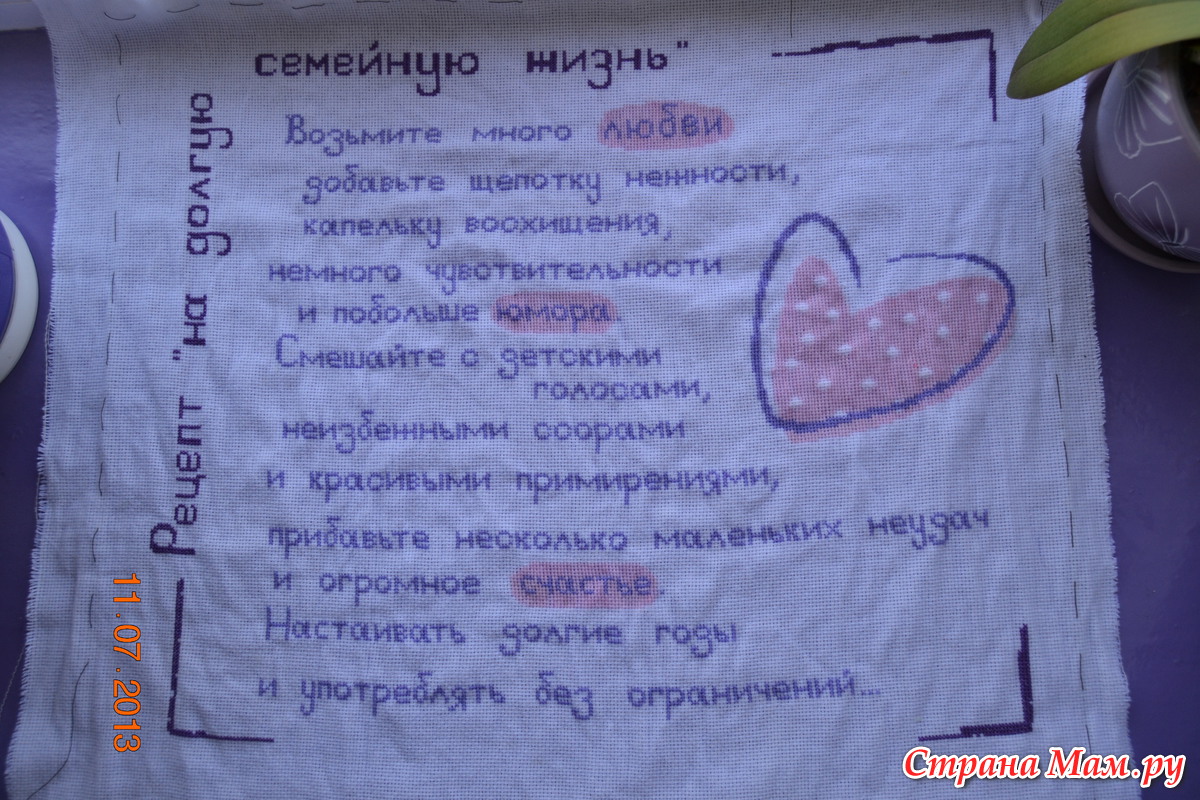 Рецепт "на долгую
семейную жизнь"
Возьмите много любви
добавьте щепотку нежности,
капельку восхищения,
немного чувствительности
и побольше юмора.
Смешайте с детскими
голосами,
неизбежными ссорами
и красивыми примирениями,
прибавьте несколько маленьких неудач
и огромное счастье.
Настаивать долгие годы
и употреблять без ограничений...
11.07.2013
Страна Мам.ру